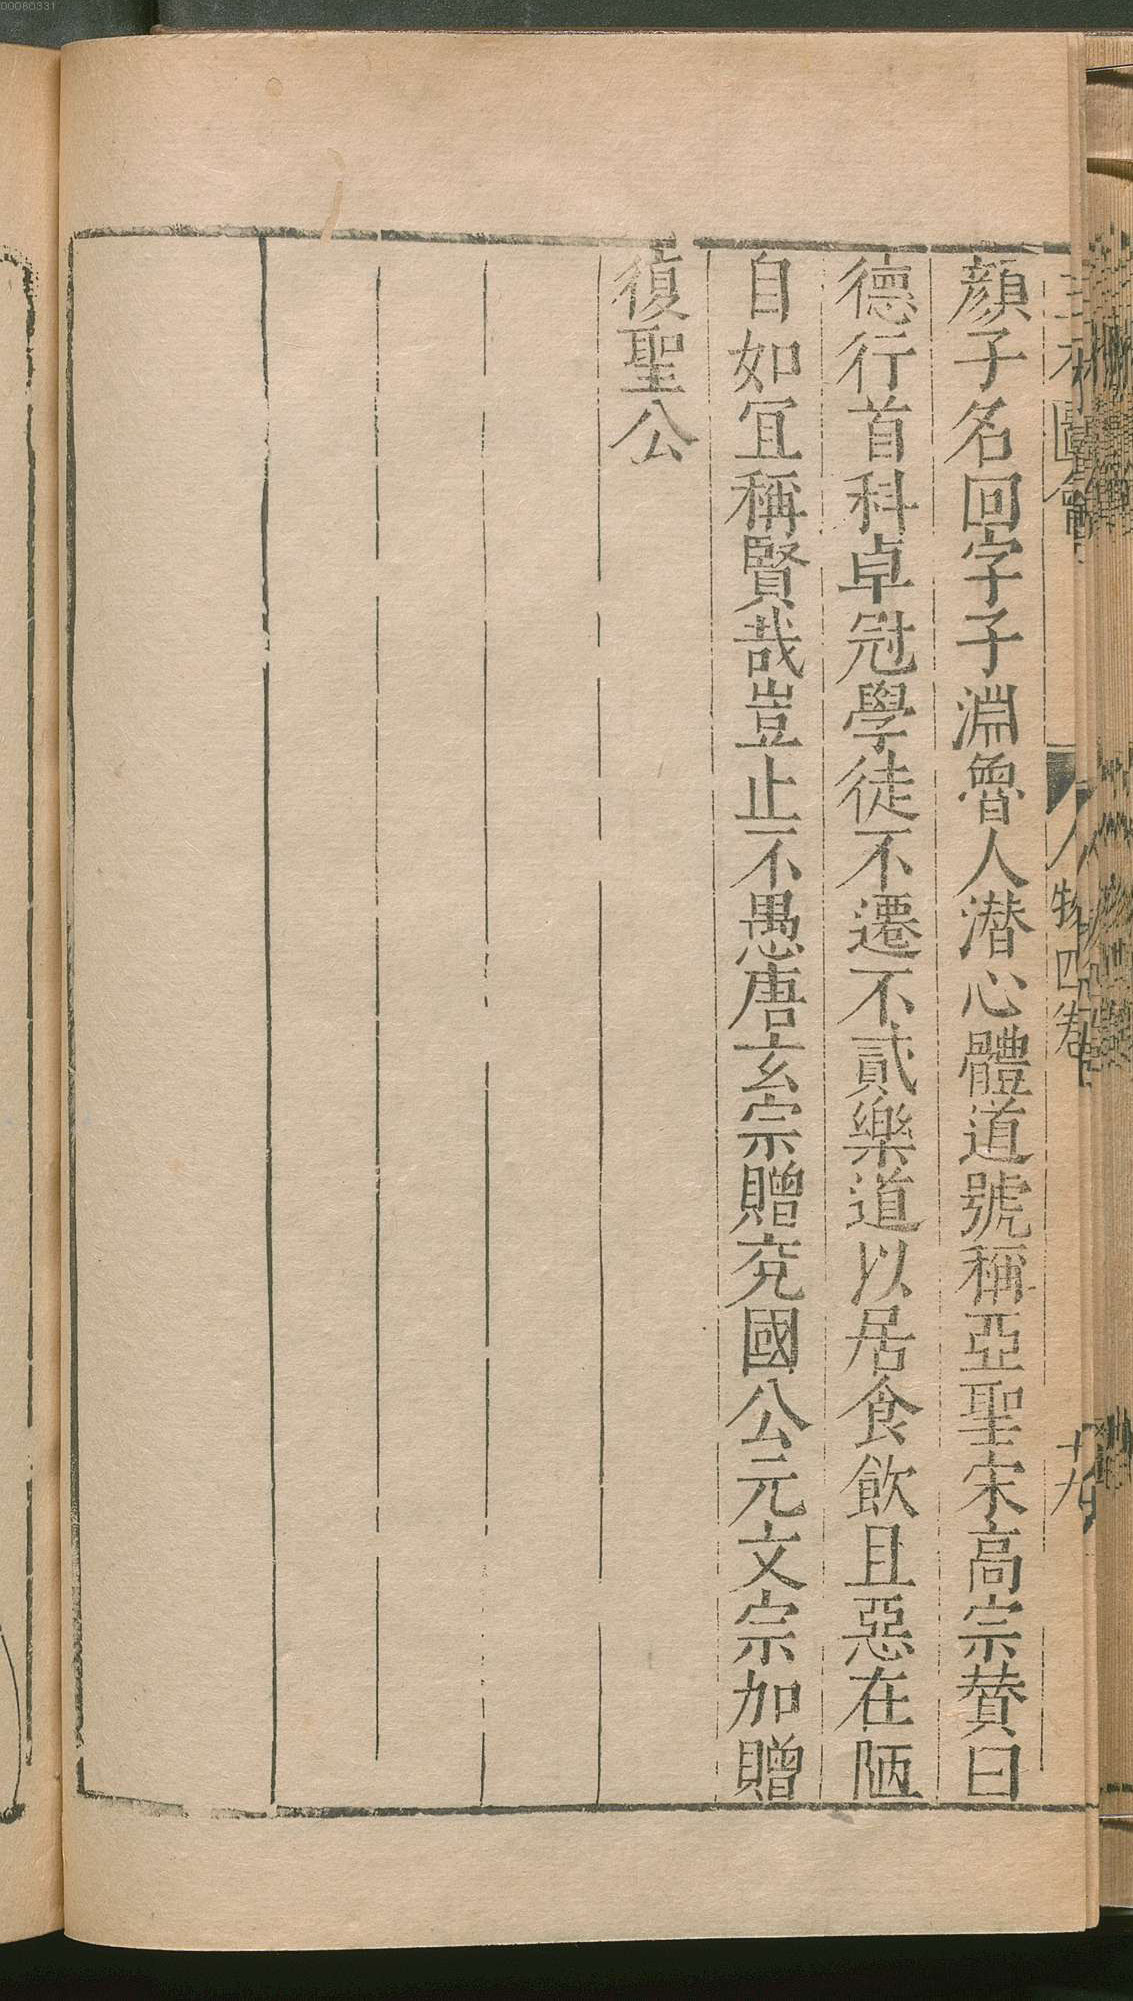 顔子名回字子淵魯人潜心體道號稱亞聖宋高宗賛曰
德行首科卓冠學徒不遷不貳樂道以居食飲且惡在陋
自如冝稱賢哉豈止不愚唐玄宗贈兖國公元文宗加贈
復聖公
三才圖會
人物四卷
00080331